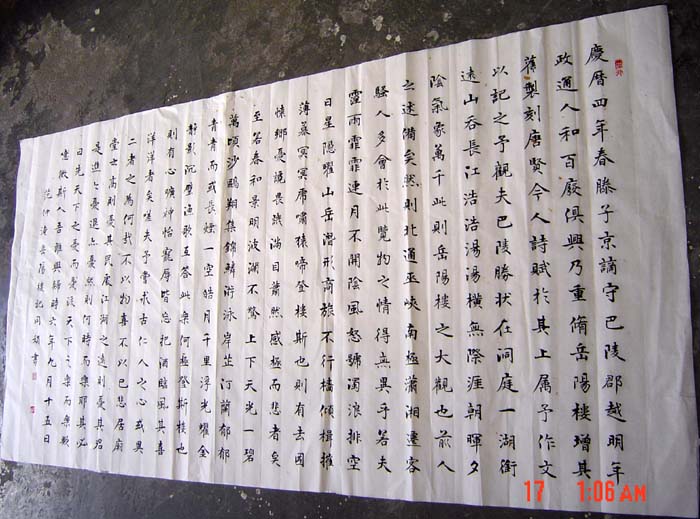 慶曆四年春滕子京謫守巴陵郡越明年
政通人和百廢俱興乃重脩岳陽樓增其
舊製刻唐賢今人詩賦於其上属予作文
以記之予觀夫巴陵勝狀在洞庭一湖銜
遠山吞長江浩浩湯湯橫無際涯朝暉夕
陰氣象萬千此則岳陽樓之大觀也前人
之述備矣然則北通巫峽南極瀟湘遷客
騷人多會於此覽物之情得無異乎若夫
霪雨霏霏連月不開陰風怒號濁浪排空
日星隱耀山岳潛形商旅不行檣傾楫摧
薄暮冥冥虎嘯猿啼登樓斯也則有去國
懷鄉憂讒畏譏滿目蕭然感極而悲者矣
至若春和景明波瀾不驚上下天光一碧
萬頃沙鷗翔集錦鱗游泳岸芷汀蘭郁郁
青青而或長煙一空皓月千里浮光耀金
靜影沉璧漁歌互答此樂何極登斯樓也
則有心曠神怡寵辱皆忘把酒臨風其喜
洋洋者矣嗟夫予嘗求古仁人之心或異
二者之為何哉不以物喜不以己悲居廟
堂之高則憂其民處江湖之遠則憂其君
是進亦憂退亦憂然則何時而樂耶其必
曰先天下之憂而憂後天下之樂而樂歟
噫微斯人吾誰與歸時六年九月十五日
范仲淹岳陽樓記 書
17 1:06 AM